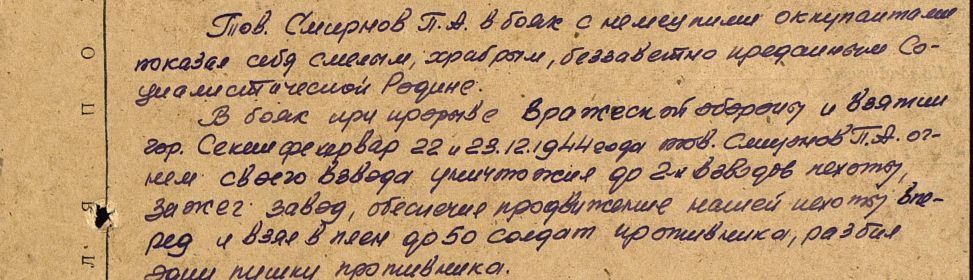 Тов. Смирнов П.А. в боях с немецкими оккупантами
показал себя смелым, храбрым, беззаветно преданным Со-
циалистической Родине.
В боях при прорыве вражеской обороны и взятии
гор. Секешфехервар 22 и 23.12.1944 года тов. Смирнов П.А. ог-
нем своего взвода уничтожил до 2-х взводов пехоты,
зажег завод, обеспечив продвижение нашей пехоты впе-
ред и взял в плен до 50 солдат противника, разбил
одну пушку противника.
О
П
Я
Л